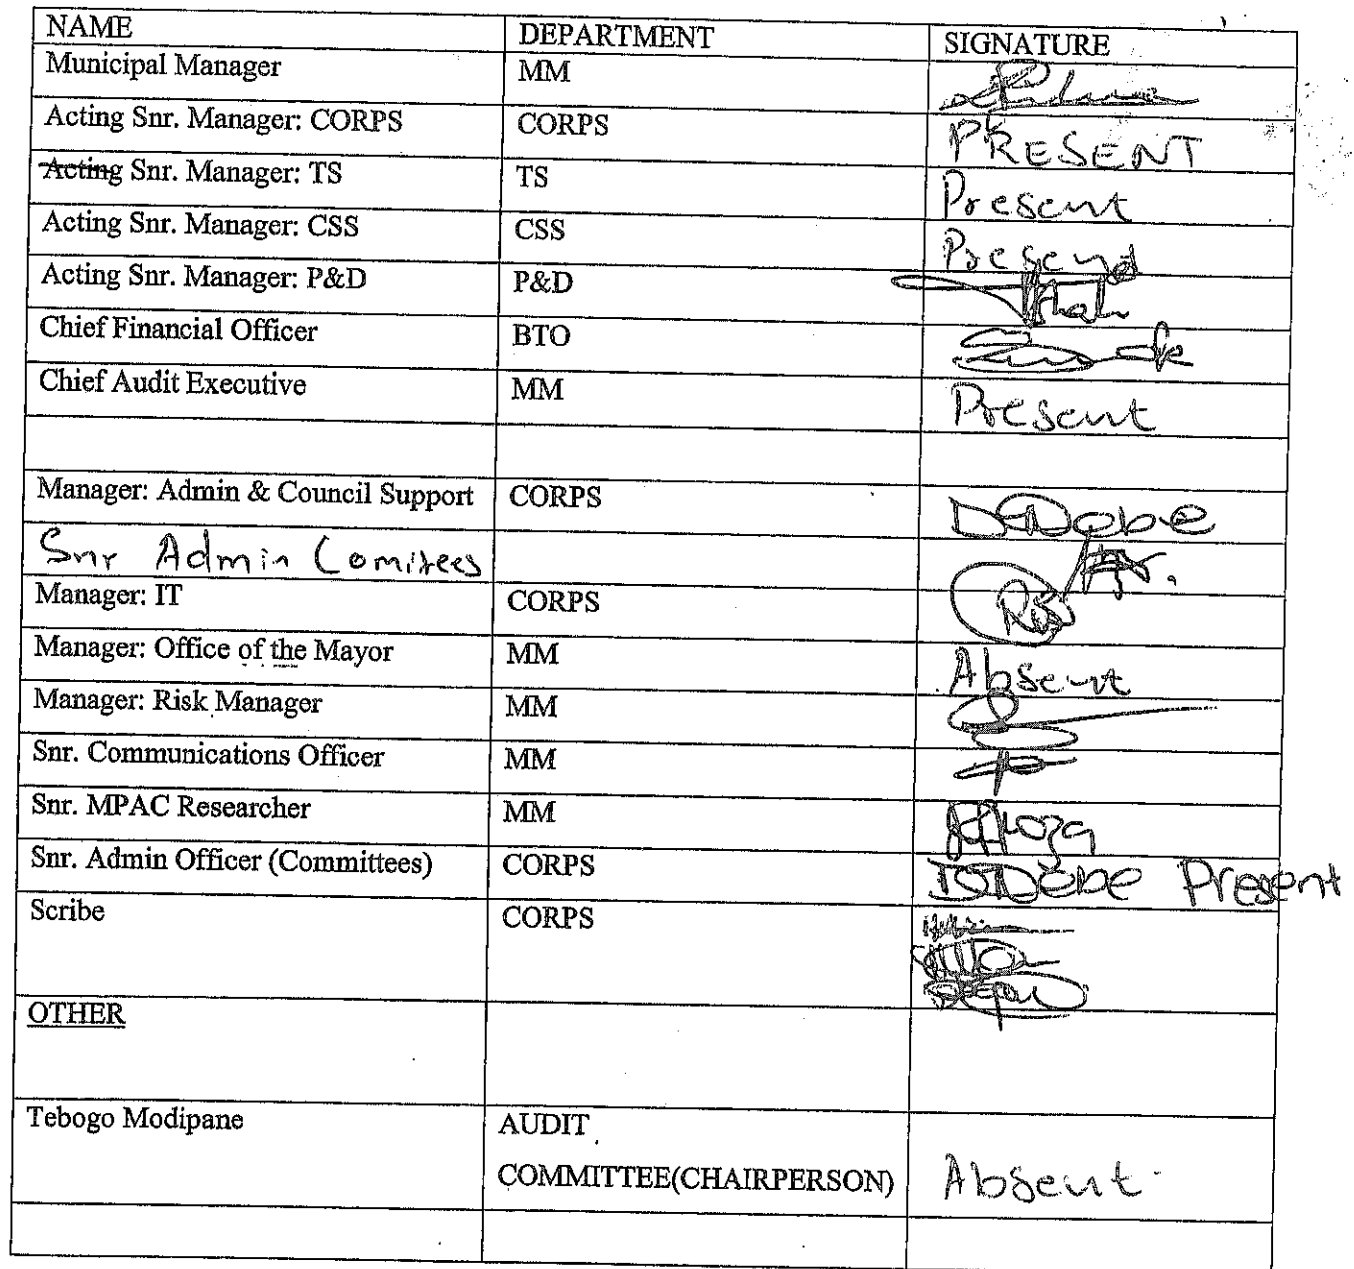 NAME DEPARTMENT SIGNATURE
Municipal Manager MM
Acting Snr. Manager: CORPS CORPS PRESENT
Acting Snr. Manager: TS TS Present
Acting Snr. Manager: CSS CSS Present
Acting Snr. Manager: P&D P&D
Chief Financial Officer BTO
Chief Audit Executive MM Present
Manager: Admin & Council Support CORPS
Snr Admin Comitees
Manager: IT CORPS
Manager: Office of the Mayor MM Absent
Manager: Risk Manager MM
Snr. Communications Officer MM
Snr. MPAC Researcher MM
Snr. Admin Officer (Committees) CORPS Present
Scribe CORPS
OTHER
Tebogo Modipane AUDIT
COMMITTEE(CHAIRPERSON) Absent